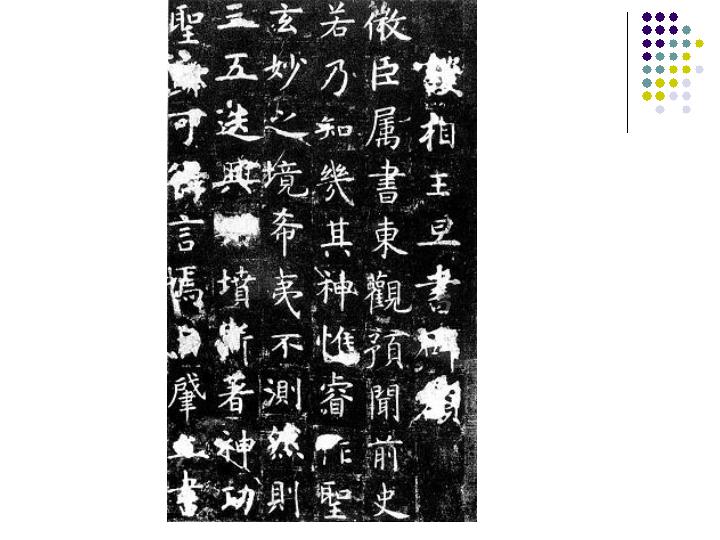 護相王旦書碑額
微臣属書東觀預聞前史
若乃知幾其神惟睿作聖
玄妙之境希夷不測然則
三五迭興墳斯著神功
聖可得言焉肇立書